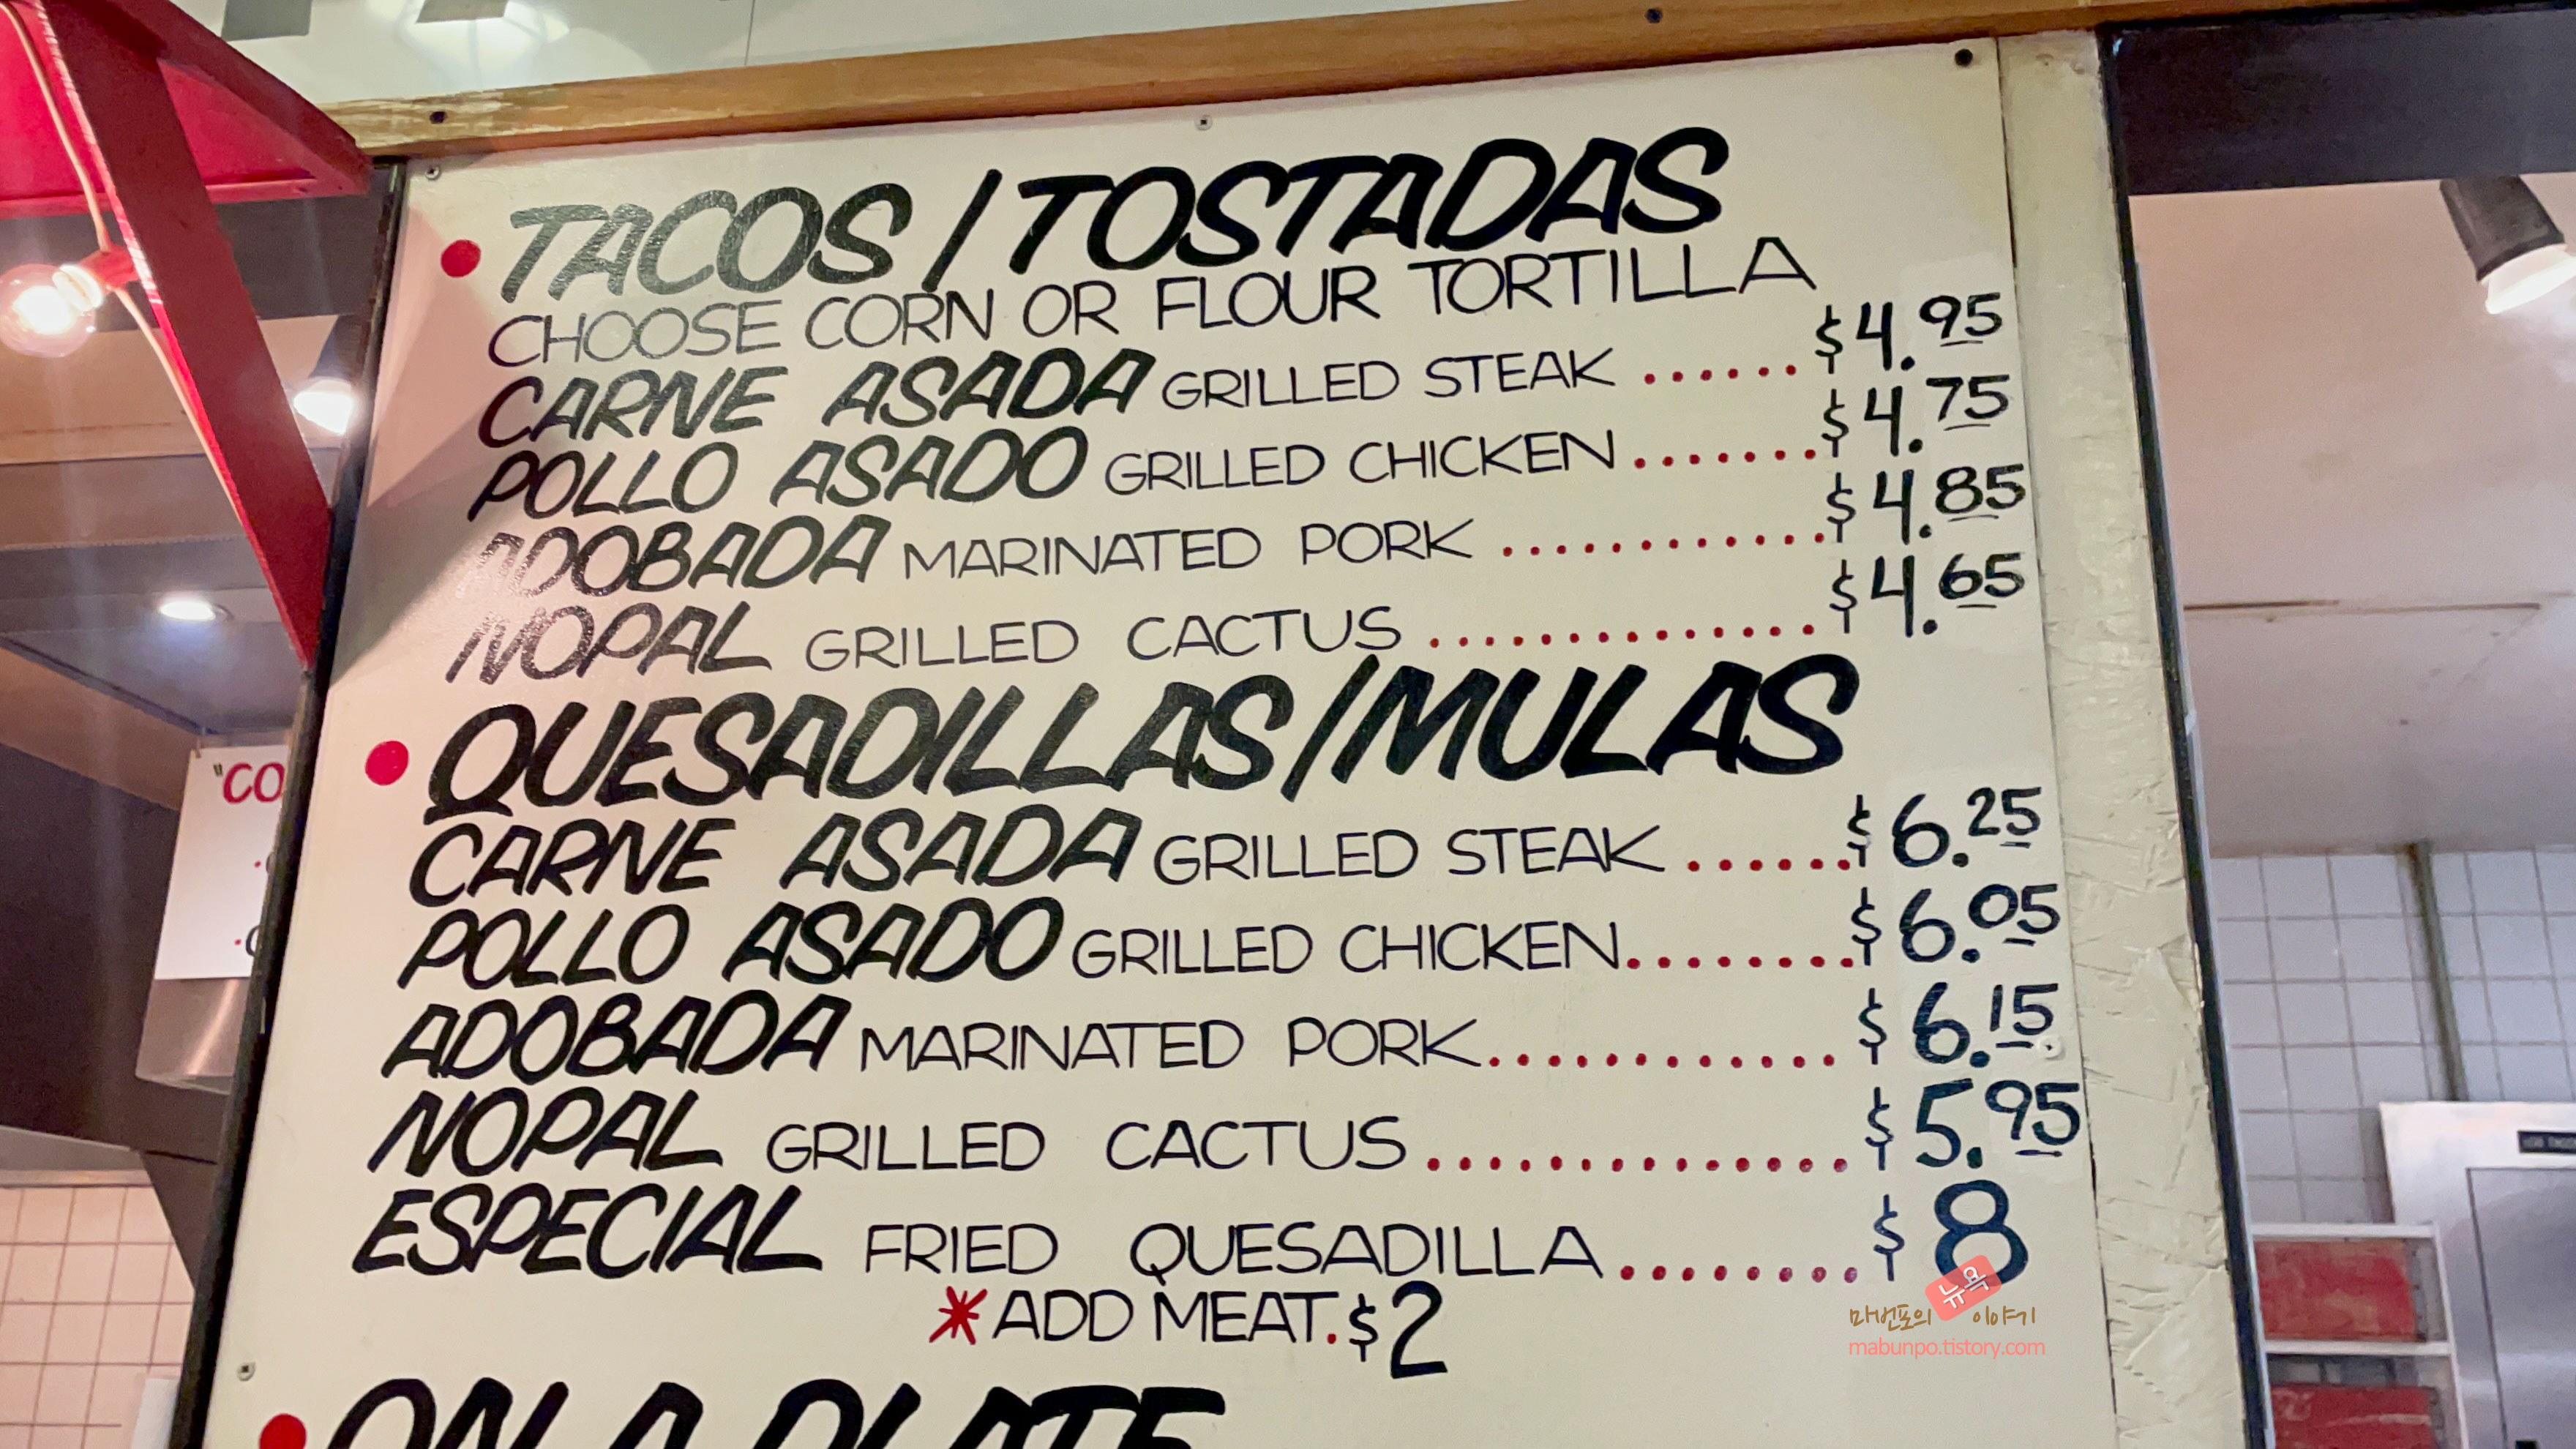 TACOS / TOSTADAS
CHOOSE CORN OR FLOUR TORTILLA
CARNE ASADA GRILLED STEAK ...... $4.95
POLLO ASADO GRILLED CHICKEN ....... $4.75
ADOBADA MARINATED PORK ............ $4.85
NOPAL GRILLED CACTUS .............. $4.65
QUESADILLAS/MULAS
CARNE ASADA GRILLED STEAK ...... $6.25
POLLO ASADO GRILLED CHICKEN ........ $6.05
ADOBADA MARINATED PORK ............ $6.15
NOPAL GRILLED CACTUS .............. $5.95
ESPECIAL FRIED QUESADILLA ........ $8
*ADD MEAT. $2
ON A PLATE
"CO
마번포의 뉴욕 이야기
mabunpo.tistory.com